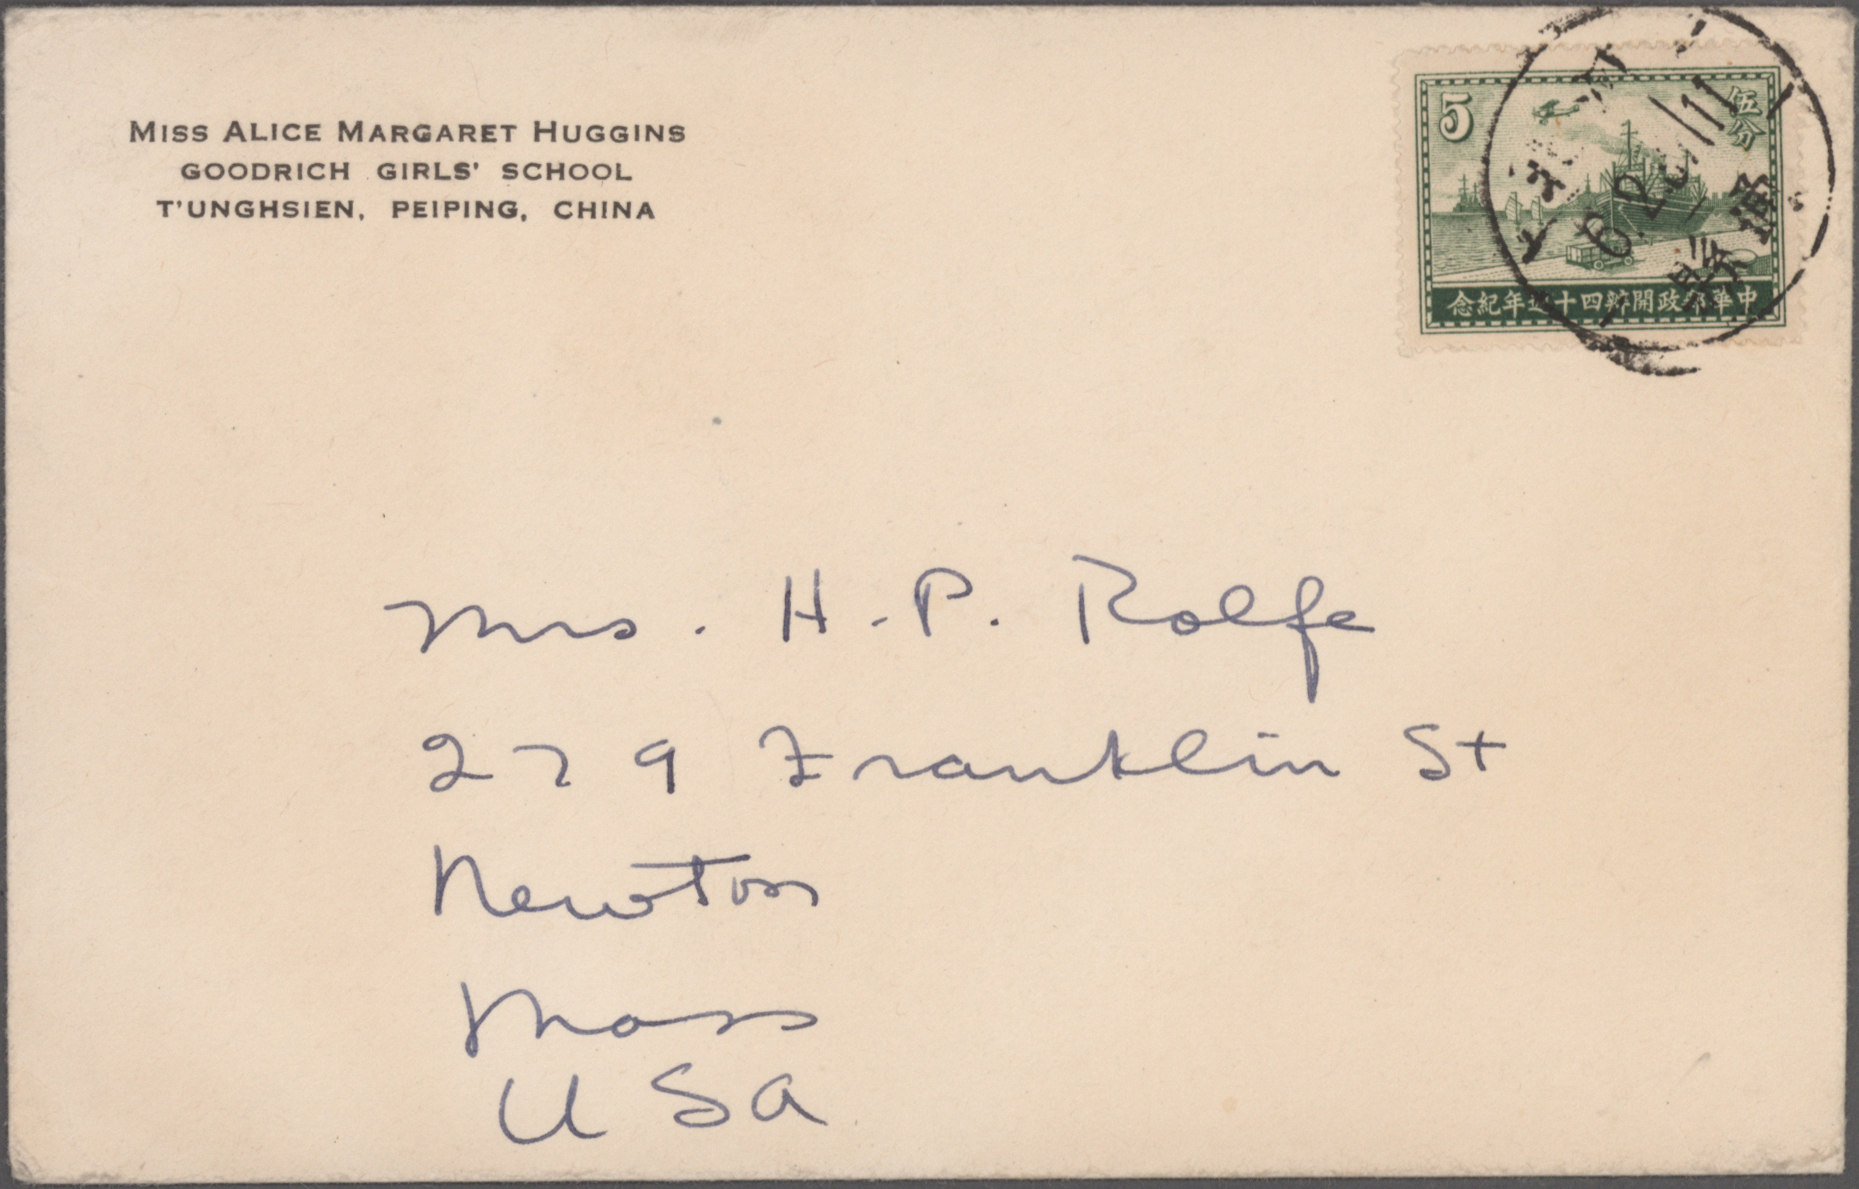 MISS ALICE MARGARET HUGGINS
GOODRICH GIRLS' SCHOOL
T'UNGHSIEN, PEIPING, CHINA
5
伍分
念紀年週十四辦開政郵華中
Mrs. H. P. Rolfe
279 Franklin St
Newton
Mass
USA